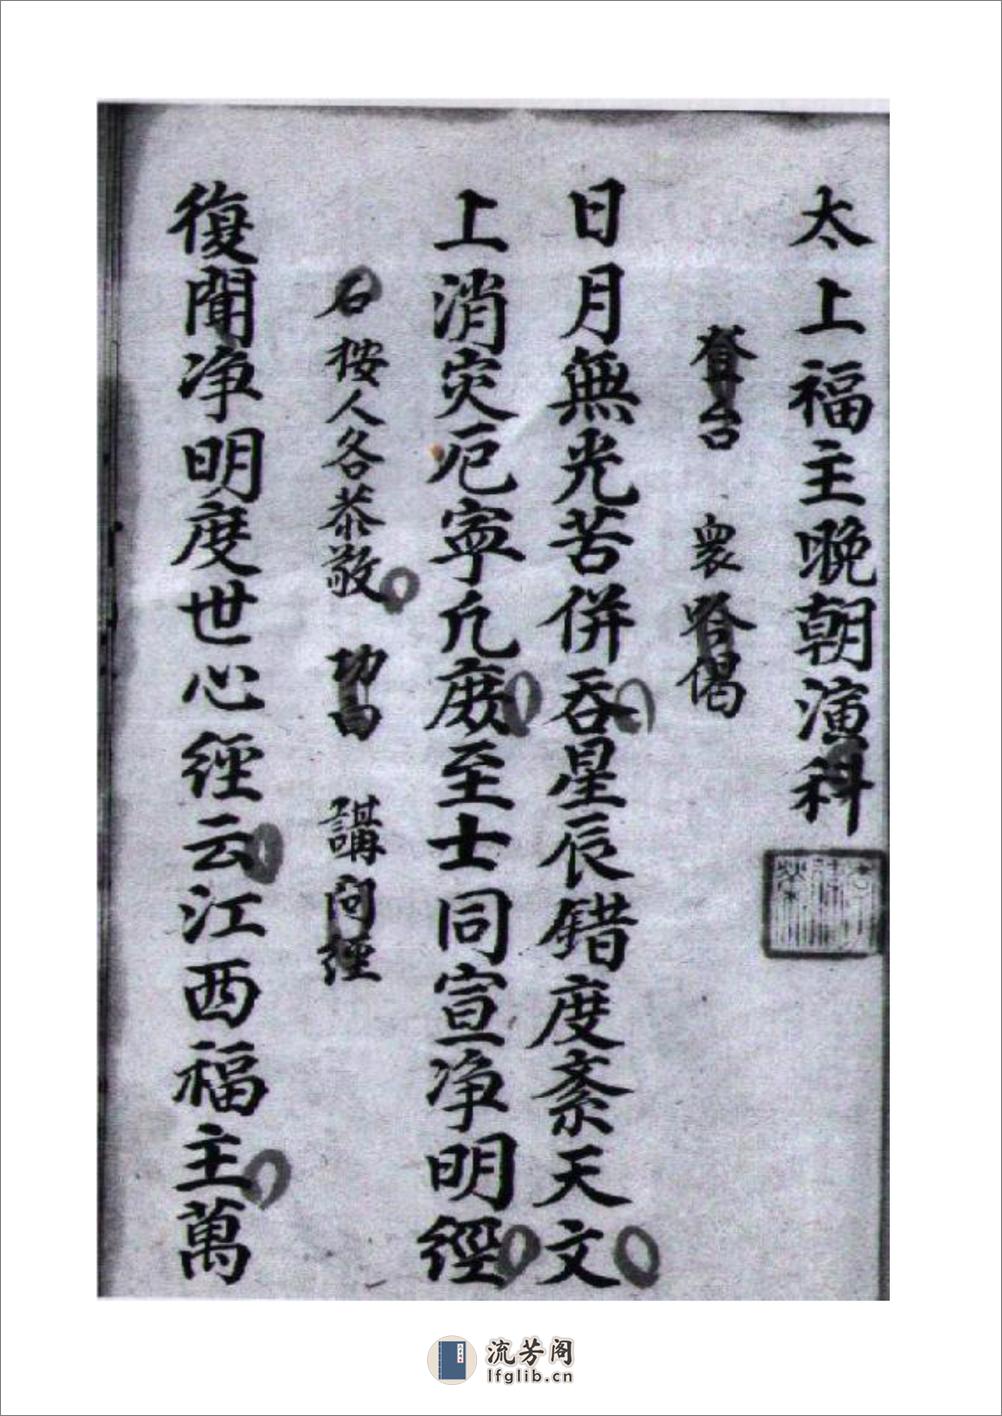 太上福主晚朝演科
登台 衆咯偈
日月無光苦併吞星辰錯度紊天文
上消灾厄寧凢庻至士同宣净明經
右按人各恭敬 功曹 講问經
復聞净明度世心經云江西福主萬
流芳阁
lfglib.cn